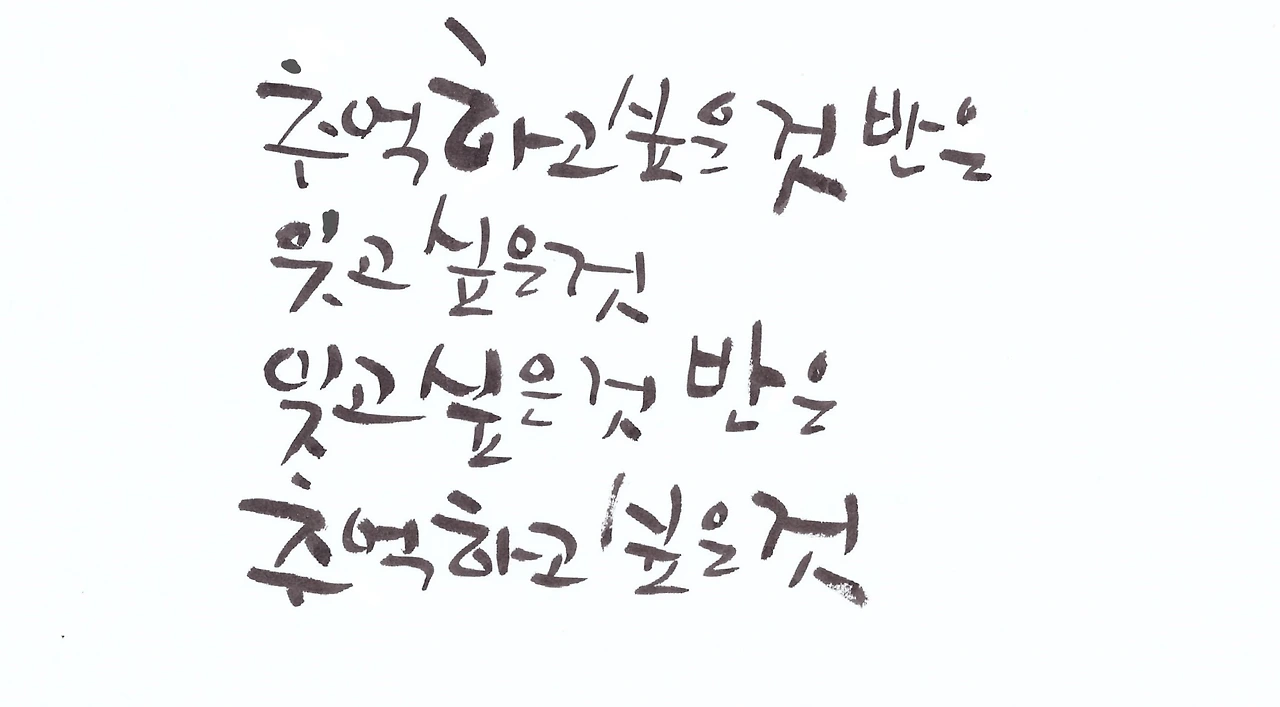 추억하고싶은 것 반은
잊고 싶은것
잊고싶은것 반은
추억하고 싶은것